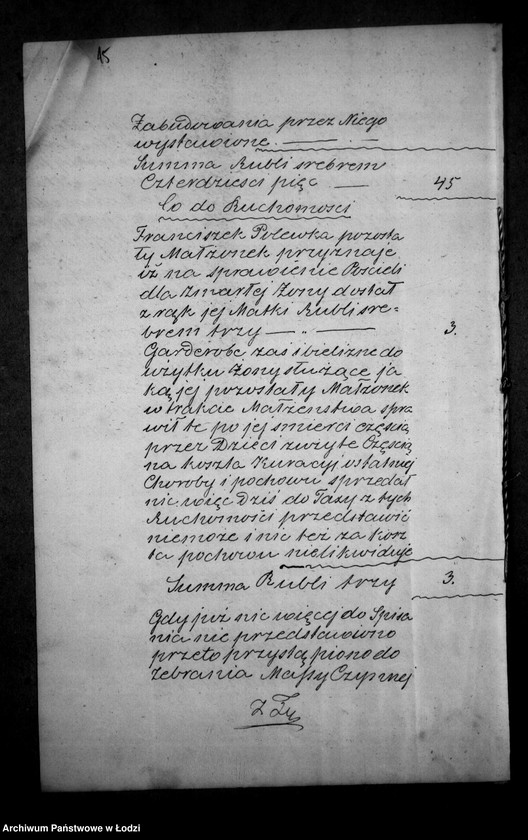 15
Zabudowania przez Niego
wystawione
Summa Rubli srebrem
Czterdzieści pięć 45
Co do Ruchomości
Franciszek Polewka pozosta
ły Małżonek przyznaje
iż na sprawienie Pościeli
dla zmarłej żony dostał
z rąk jej Matki Rubli sre=
brem trzy 3.
Garderobe zaś i bielizne do
użytku żony służące ja
ką jej pozostały Małżonek
w trakcie Małżeństwa spra
wił te po jej śmierci częścią
przez Dzieci zużyte Częścią
na koszta Kuracyi ostatniej
Choroby i pochowu sprzedał
nic więc Dziś do Taxy z tych
Ruchomości przedstawić
niemoże i nic też za kosz
ta pochowu nielikwiduje
Summa Rubli trzy 3.
Gdy już nic więcej do Spisa
nia nie przedstawiono
przeto przystąpiono do
Zebrania Massy Czynnej
Archiwum Państwowe w Łodzi